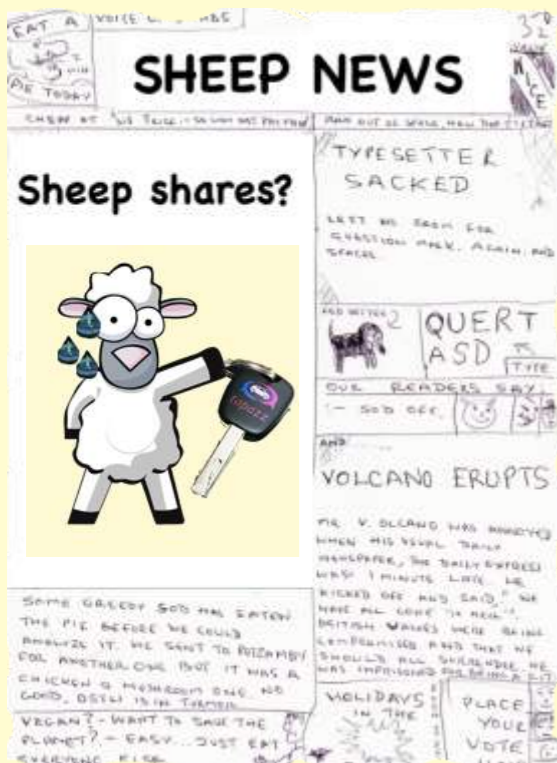 EAT A
PIE TODAY
VOICE
SHEEP NEWS
NICE
CHEEP AT
RAN OUT OF SPACE, HOW
Sheep shares?
TYPESETTER
SACKED
LEFT NO ROOM FOR
QUESTION MARK. AGAIN. AND
SPACES
QUERT
ASD
TYPE
OUR READERS SAY
- SOD OFF.
AND
VOLCANO ERUPTS
MR V. OLCANO WAS ANNOYED
WHEN HIS USUAL DAILY
NEWSPAPER, THE DAILY EXPRESS
WAS 1 MINUTE LATE. HE
KICKED OFF AND SAID, "WE
HAVE ALL GONE
BRITISH VALUES WERE BEING
COMPROMISED AND THAT WE
SHOULD ALL SURRENDER. HE
WAS IMPRISONED FOR BEING A GIT
SOME GREEDY SOD HAS EATEN
THE PIE BEFORE WE COULD
ANALYZE IT. WE SENT TO
FOR ANOTHER ONE BUT IT WAS A
CHICKEN & MUSHROOM ONE. NO
GOOD. IS IN
VEGAN? - WANT TO SAVE THE
PLANET? - EASY... JUST EAT
EVERYONE ELSE
HOLIDAYS
IN THE
PLACE
YOUR
VOTE